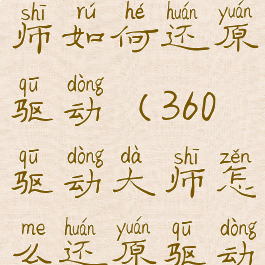 shī rú hé huán yuán
师如何还原
qū dòng
驱动（360
qū dòng dà shī zěn
驱动大师怎
me huán yuán qū dòng
么还原驱动